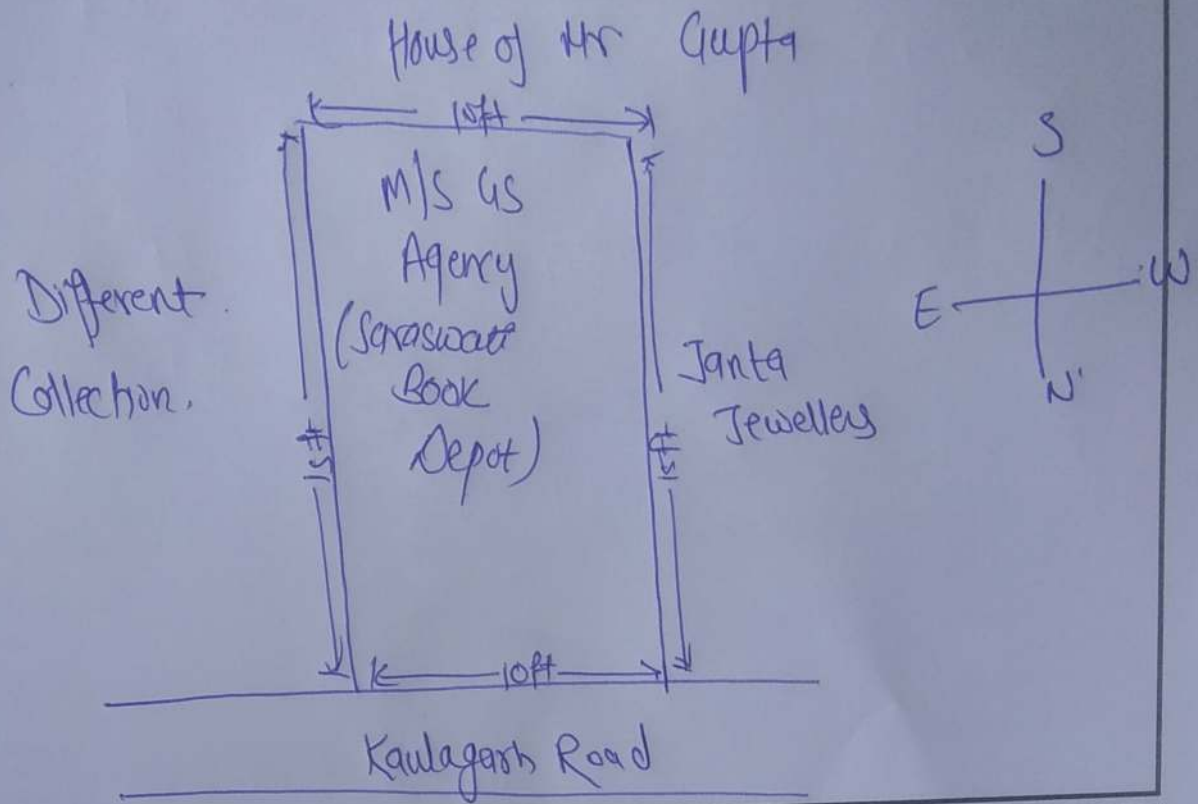 House of Mr Gupta
10ft
M/S GS
Agency
(Saraswati
Book
Depot)
Different
Collection.
Janta
Jewellers
15ft
15ft
10ft
Kaulagarh Road
S
E
W
N